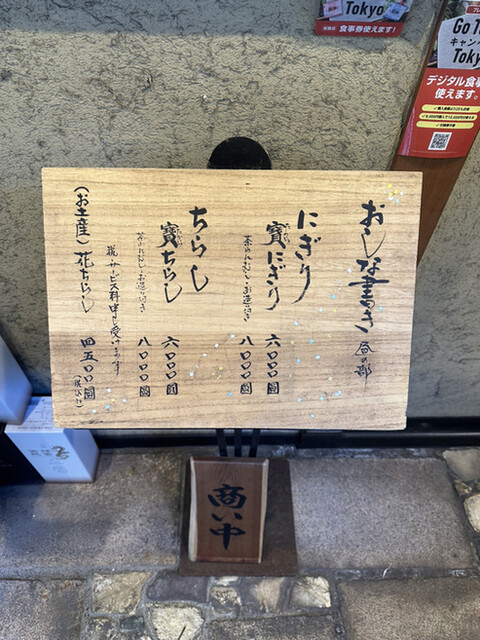 おしな書き 昼の部
にぎり 六〇〇〇圓
寳にぎり 八〇〇〇圓
茶わんむし・お造り付き
ちらし 六〇〇〇圓
寳ちらし 八〇〇〇圓
茶わんむし・お造り付き
税・サービス料申し受けます
(お土産)花ちらし 四五〇〇圓
(税込み)
商い中
Tokyo
食事券使えます!
Go To
キャンペーン
Tokyo
デジタル食事
使えます。